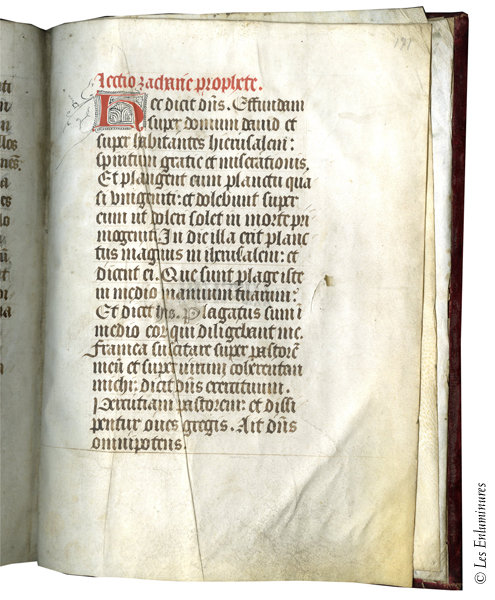 Lectio zacharie prophete.
Hec dicit dn̄s. Effundam
super domum dauid et
super habitantes hierusalem:
spiritum gratie et miserationis.
Et plangent eum planctu qua
si vnigeniti: et dolebunt super
eum ut doleri solet in morte pri
mogeniti. In die illa erit planc
tus magnus in iherusalem: et
dicent ei. Que sunt plage iste
in medio manuum tuarum:
Et dicet his. Plagatus sum i
medio eor qui diligebant me.
Framea suscitare super pastorē
meū et super uirum coherentem
michi: dicit dn̄s exercituum.
Percutiam pastorem: et dissi
pentur oues gregis. Ait dn̄s
omnipotens.
© Les Enluminures